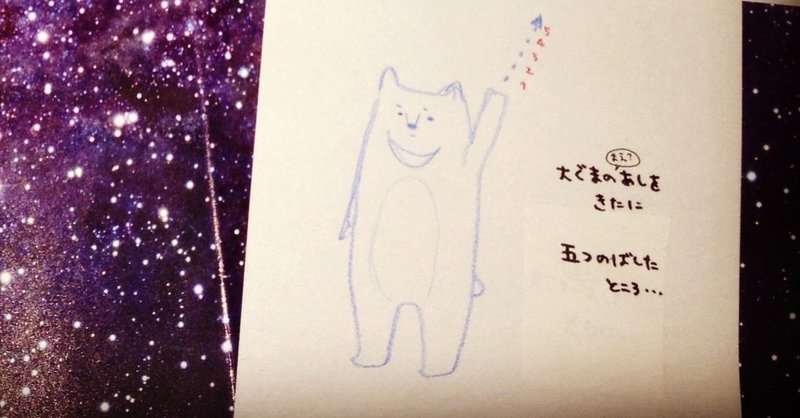 5
4
3
2
1
まえ?
大ぐまのあしを
きたに
五つのばした
ところ...